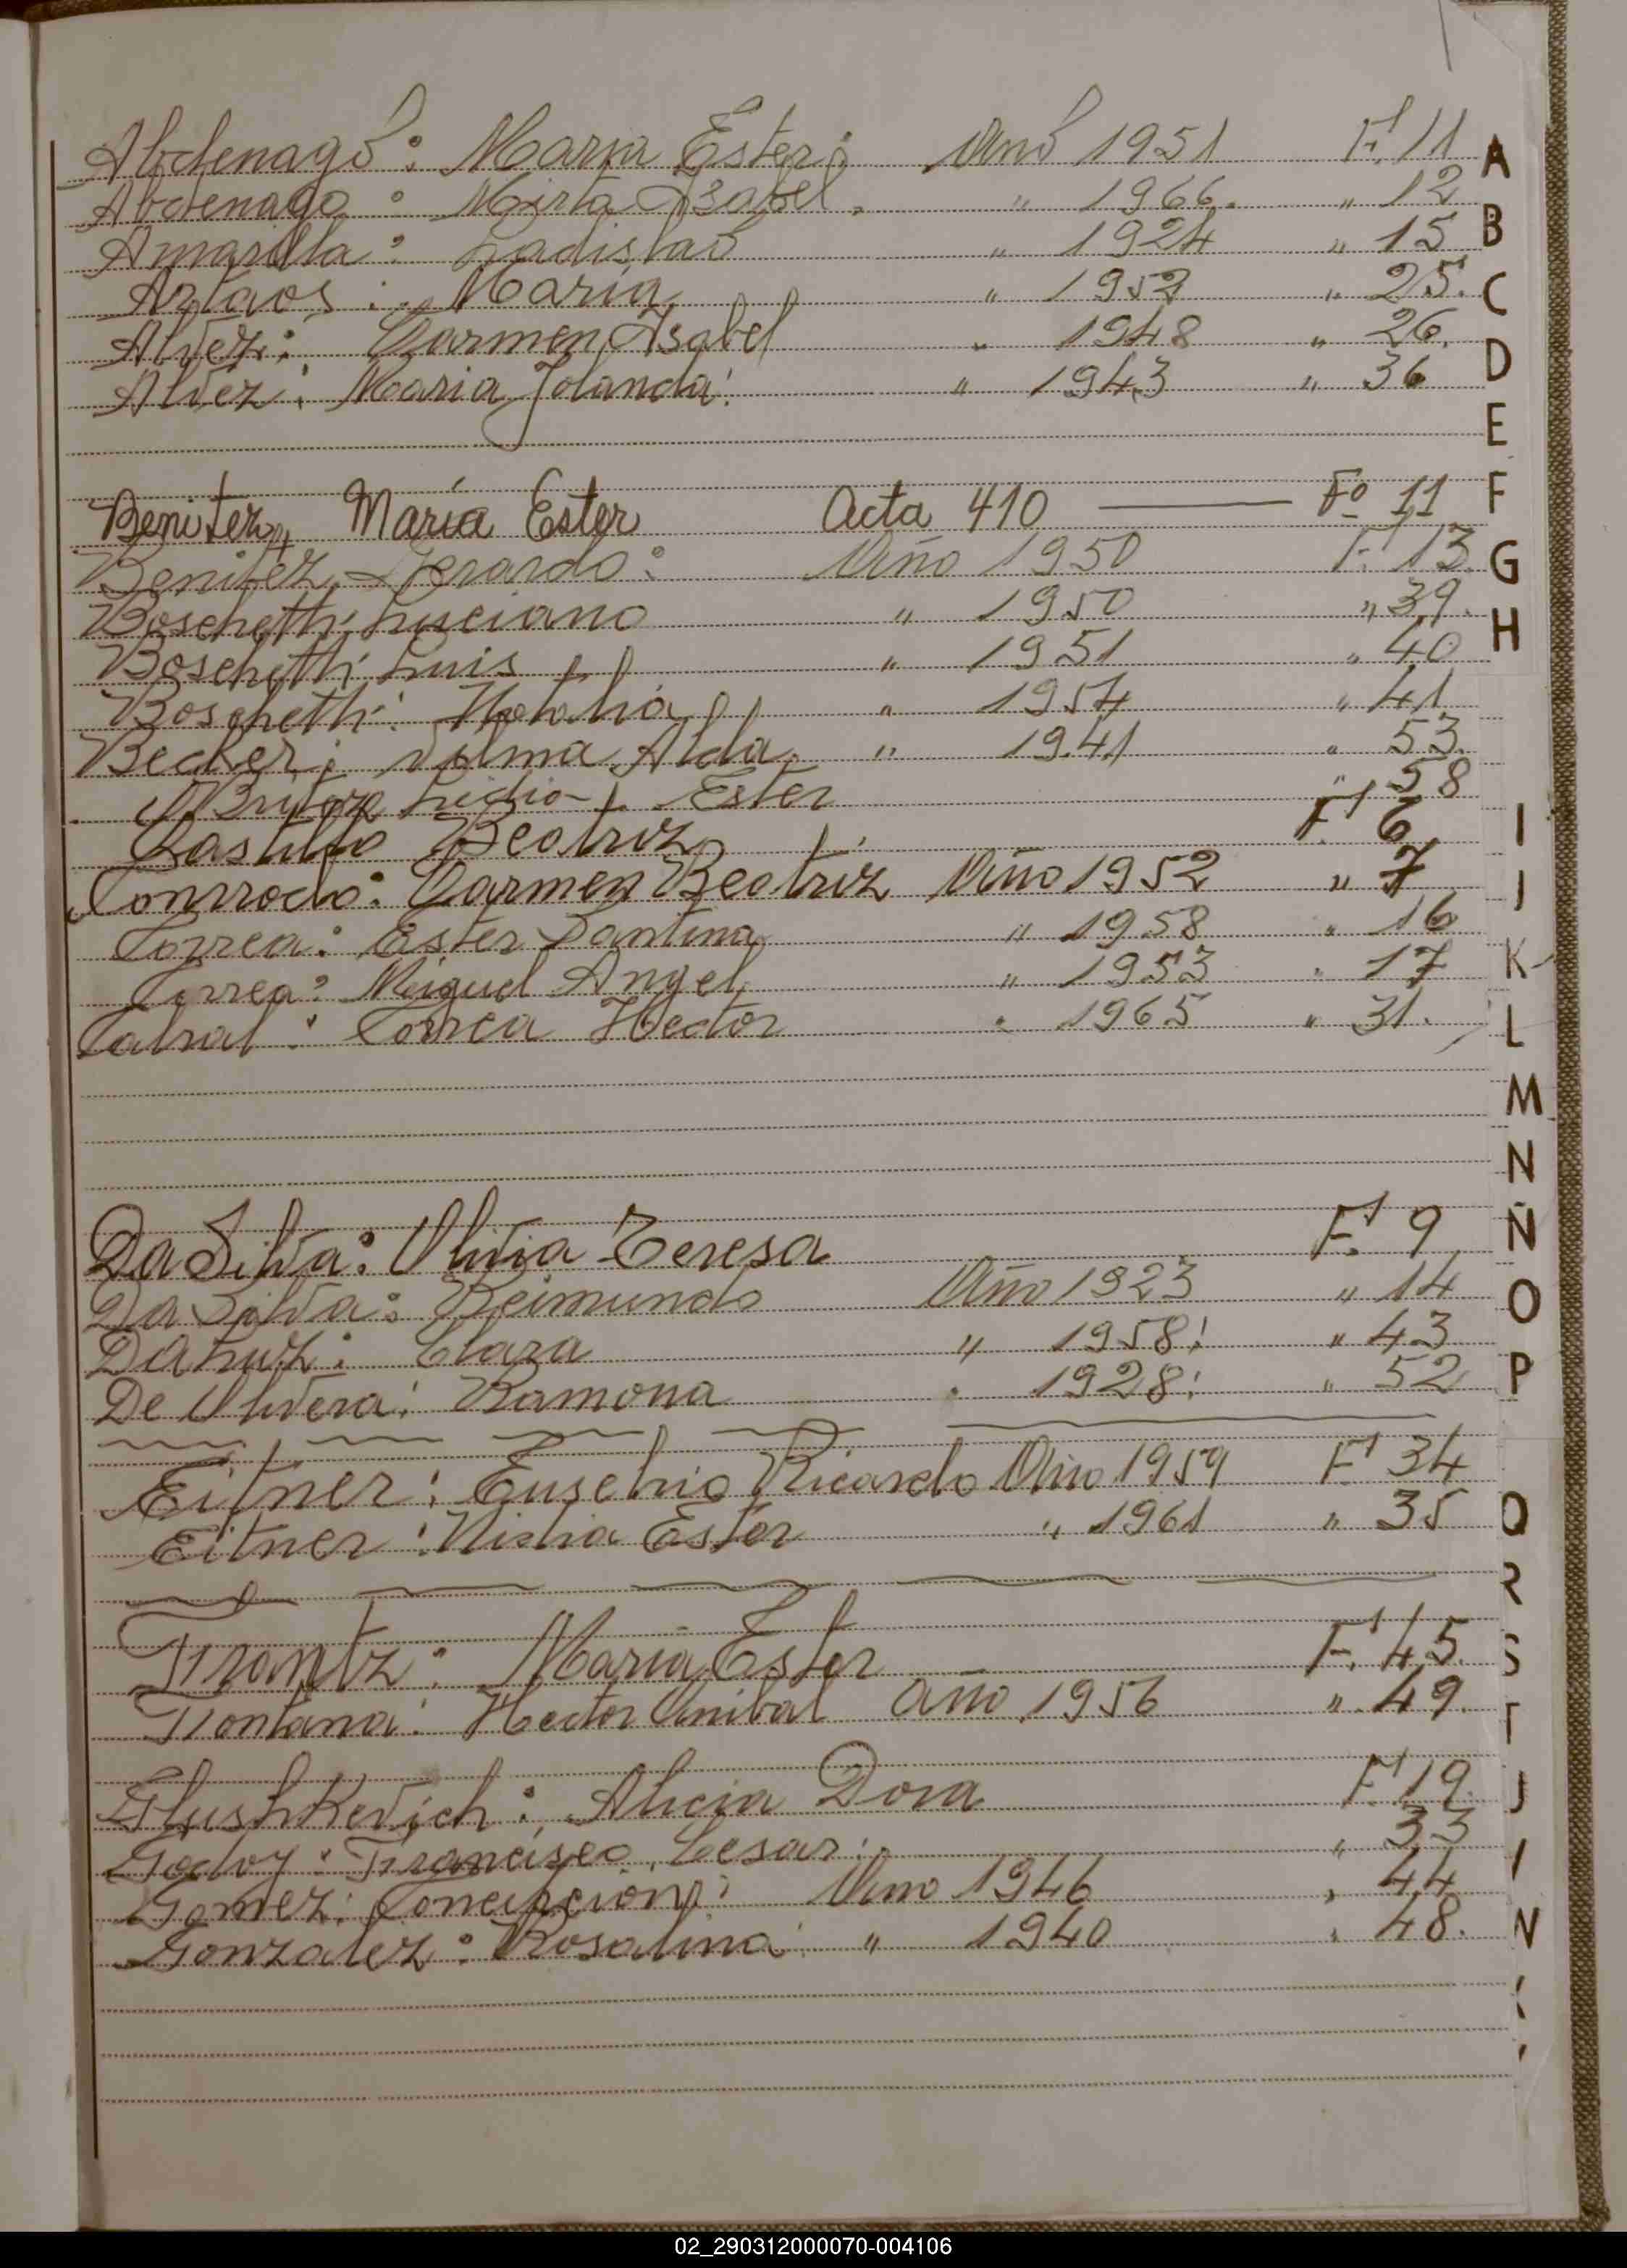 Abdenagó: Maria Ester: Año 1951 F. 11
Abdenago: Mirta Isabel. " 1966. " 12
Amarilla: Ladislaó " 1924 " 15
Artaos: Maria " 1952 " 25.
Alvez: Carmen Isabel " 1948 " 26.
Alvez: Maria Yolanda: " 1943 " 36
Benitez, María Ester Acta 410 — Fº 11
Benitez, Gerardo: Año 1950 F. 13.
Boschetti: Luciano " 1950 " 39.
Boschetti: Luis " 1951 " 40
Boschetti: Natalia " 1954 " 41
Becker: Vilma Alda. " 1941 " 53.
Lidia Ester " 58
Castillo Beatriz F. 6
Conrrado: Carmen Beatriz Año 1952 " 7
Correa: Ester Santina " 1958 " 16
Correa: Miguel Angel " 1953 " 17
Cabral: Correa Hector " 1965 " 31.
Da Silva: Olivia Teresa F. 9
Da Silva: Reimundo Año 1923 " 14
Clara " 1958: " 43
De Olivera: Ramona " 1928: " 52
Eitner: Eusebio Ricardo Año 1959 F. 34
Eitner: Ester " 1961 " 35
Frantz: Maria Ester F. 45.
Fontana: Hector Anibal año 1956 " 49.
Glushkevich: Alicia Dora F. 19.
Godoy: Francisco Cesar: " 33
Gomez: Concepciona: Año 1946 " 44
Gonzalez: Rosalina: " 1940 " 48.
A
B
C
D
E
F
G
H
I
J
K
L
M
N
Ñ
O
P
Q
R
S
T
U
02_290312000070-004106